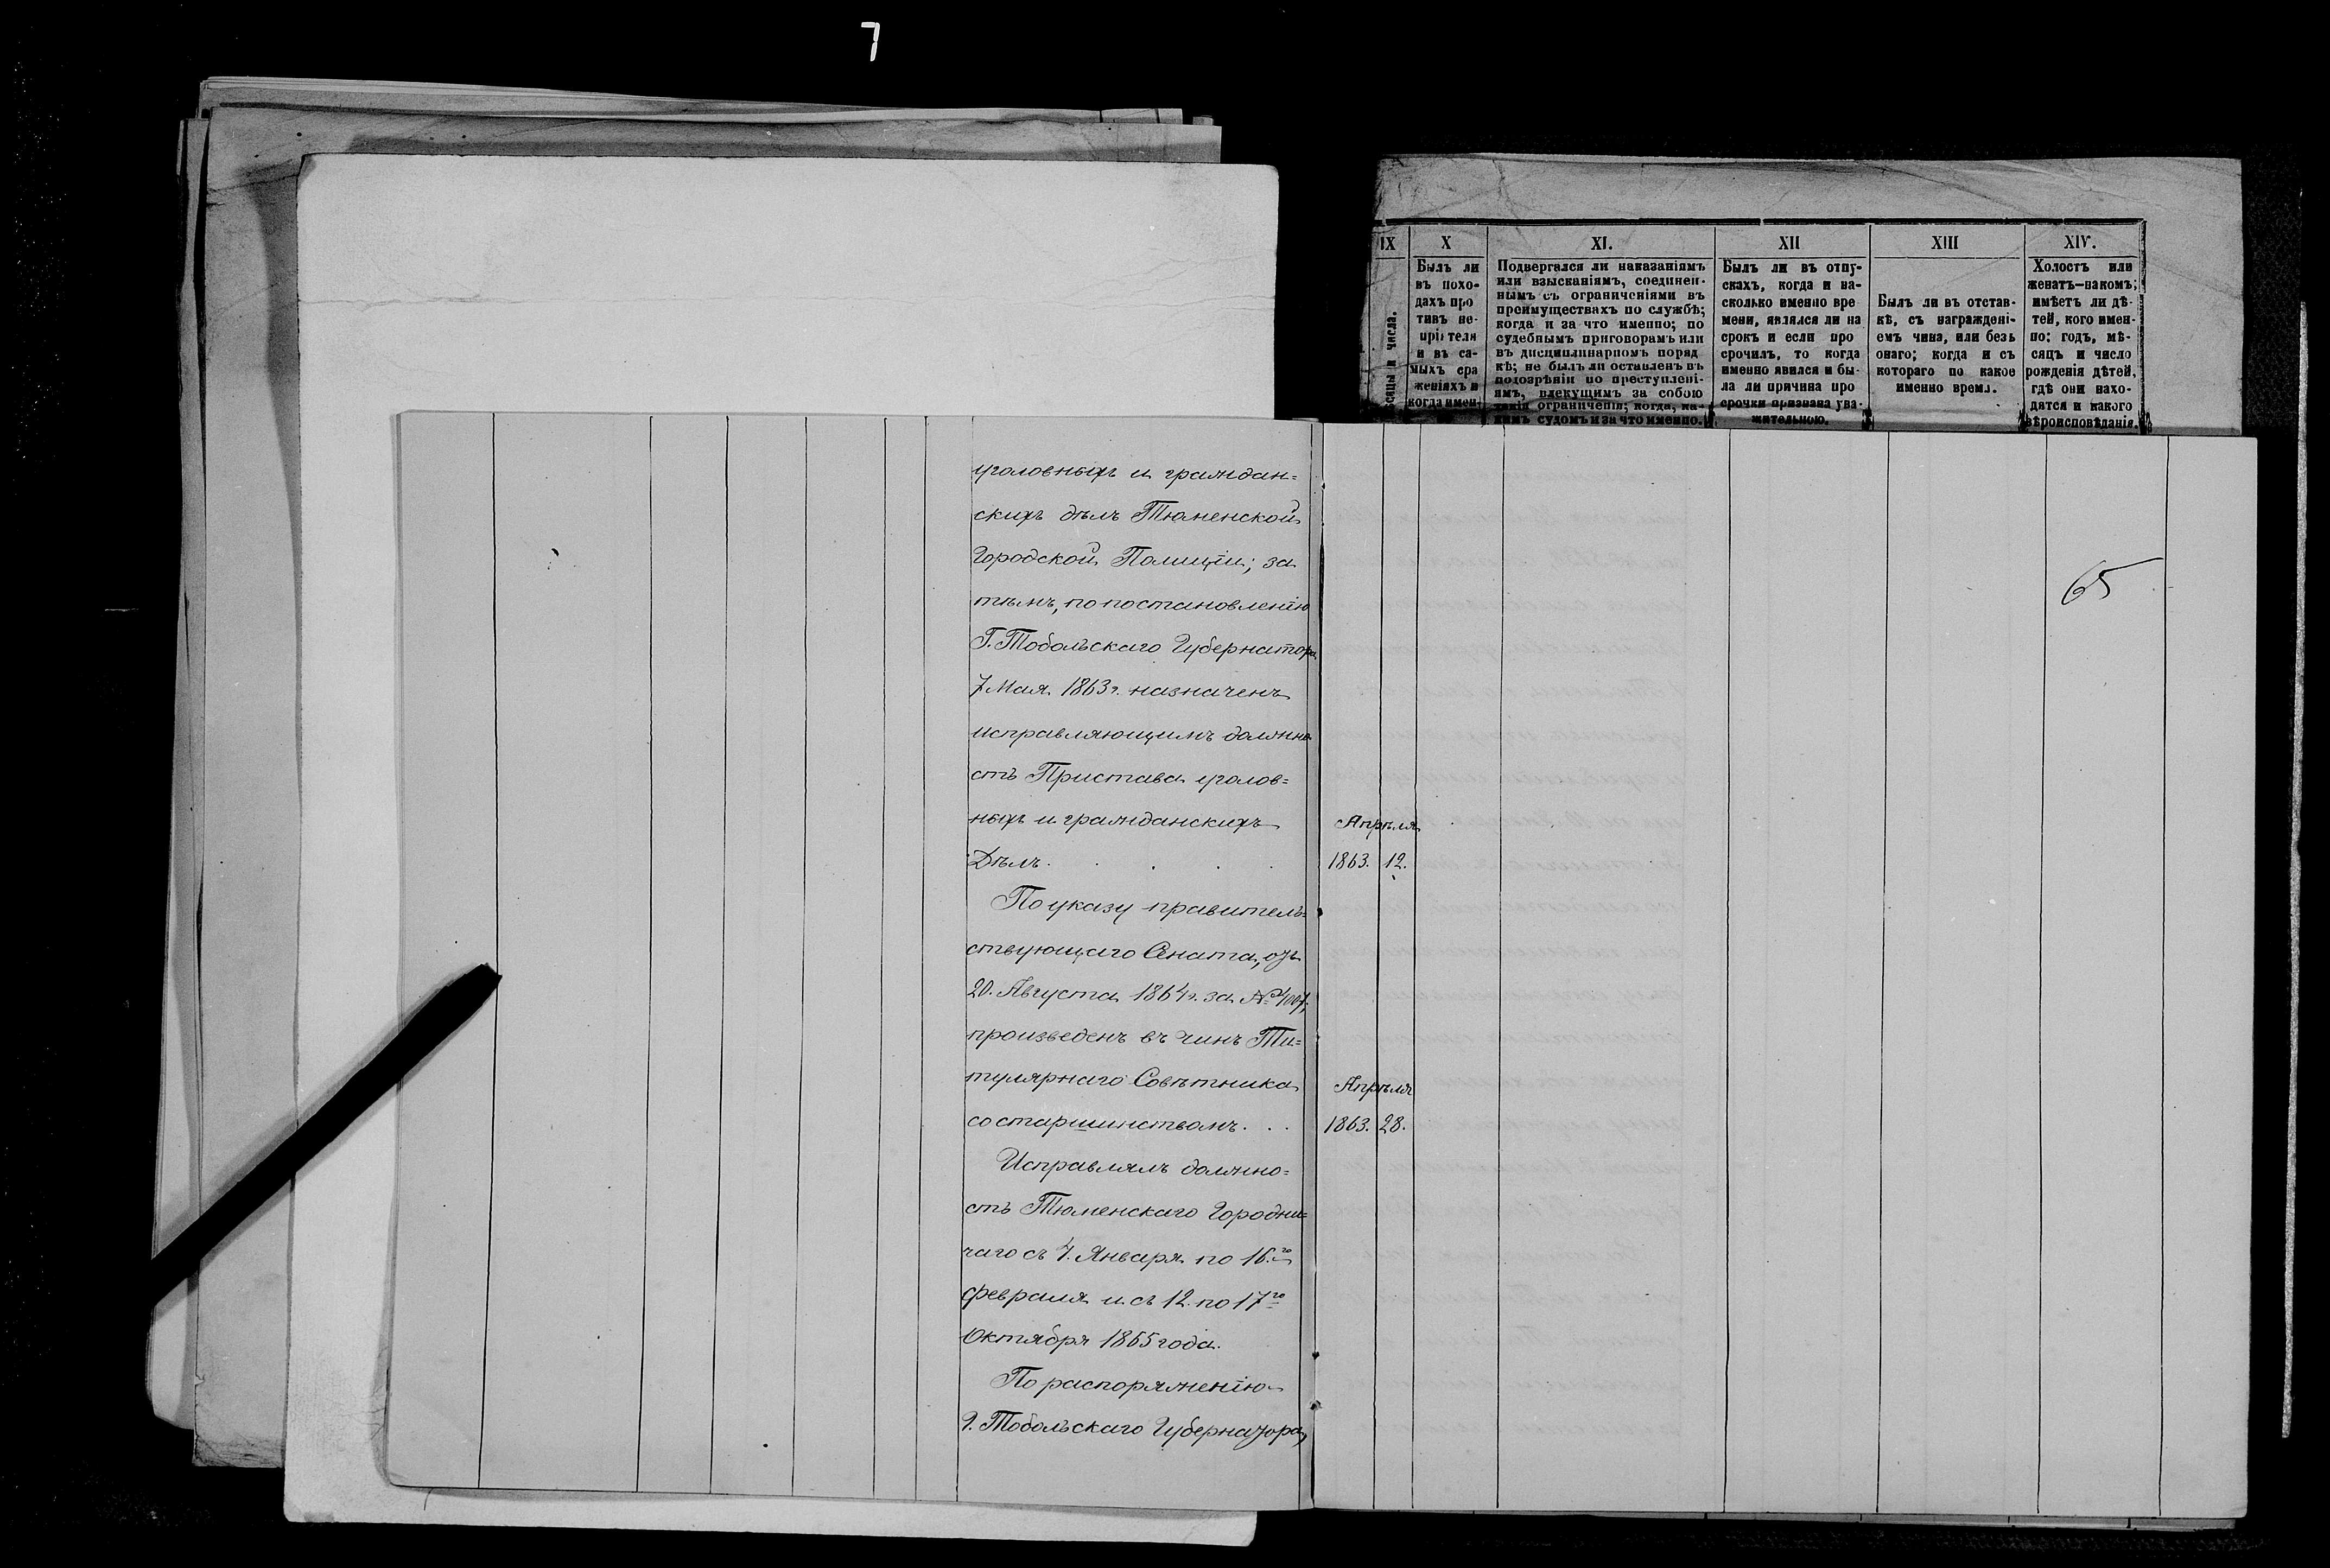 7
IX
X
XI.
XII
XIII
XIV.
сяцы и числа.
Былъ ли
въ похо-
дахъ про
тивъ не-
пріятеля
и въ са-
мыхъ сра
женіяхъ и
когда имен-
Подвергался ли наказаніямъ
или взысканіямъ, соединен-
нымъ съ ограниченіями въ
преимуществахъ по службѣ;
когда и за что именно; по
судебнымъ приговорамъ или
въ дисциплинарномъ поряд
кѣ; не былъ ли оставленъ въ
подозрѣніи по преступлені-
ямъ, влекущимъ за собою
такія ограниченія; когда, ка-
кимъ судомъ и за что именно.
Былъ ли въ отпу-
скахъ, когда и на-
сколько именно вре
мени, являлся ли на
срокъ и если про
срочилъ, то когда
именно явился и бы-
ла ли причина про
срочки признана ува-
жительною.
Былъ ли въ отстав-
кѣ, съ награжденi-
емъ чина, или безъ
онаго; когда и съ
котораго по какое
именно время.
Холостъ или
женатъ—накомъ;
имѣетъ ли дѣ-
тей, кого имен-
но; годъ, мѣ-
сяцъ и число
рожденія дѣтей,
гдѣ они нахо-
дятся и какого
вѣроисповѣданія.
65
уголовныхъ и граждан=
скихъ дѣлъ Тюменской
Городской Полиціи; за
тѣмъ, по постановленію
Г. Тобольскаго Губернатора
7 Мая 1863 г. назначенъ
исправляющимъ должно
сть Пристава уголов=
ныхъ и гражданскихъ Апрѣля
Дѣлъ. . . . . 1863. 12.
По указу правитель=
ствующаго Сената, отъ
20. Августа 1864 г. за № 4007,
произведенъ въ чинъ Ти=
тулярнаго Совѣтника Апрѣля
со старшинствомъ. . . 1863. 28.
Исправлялъ должно=
сть Тюменскаго Городни=
чаго съ 4. Января по 16.го
февраля и съ 12. по 17го
Октября 1865 года.
По распоряженію
Г. Тобольскаго Губернатора,